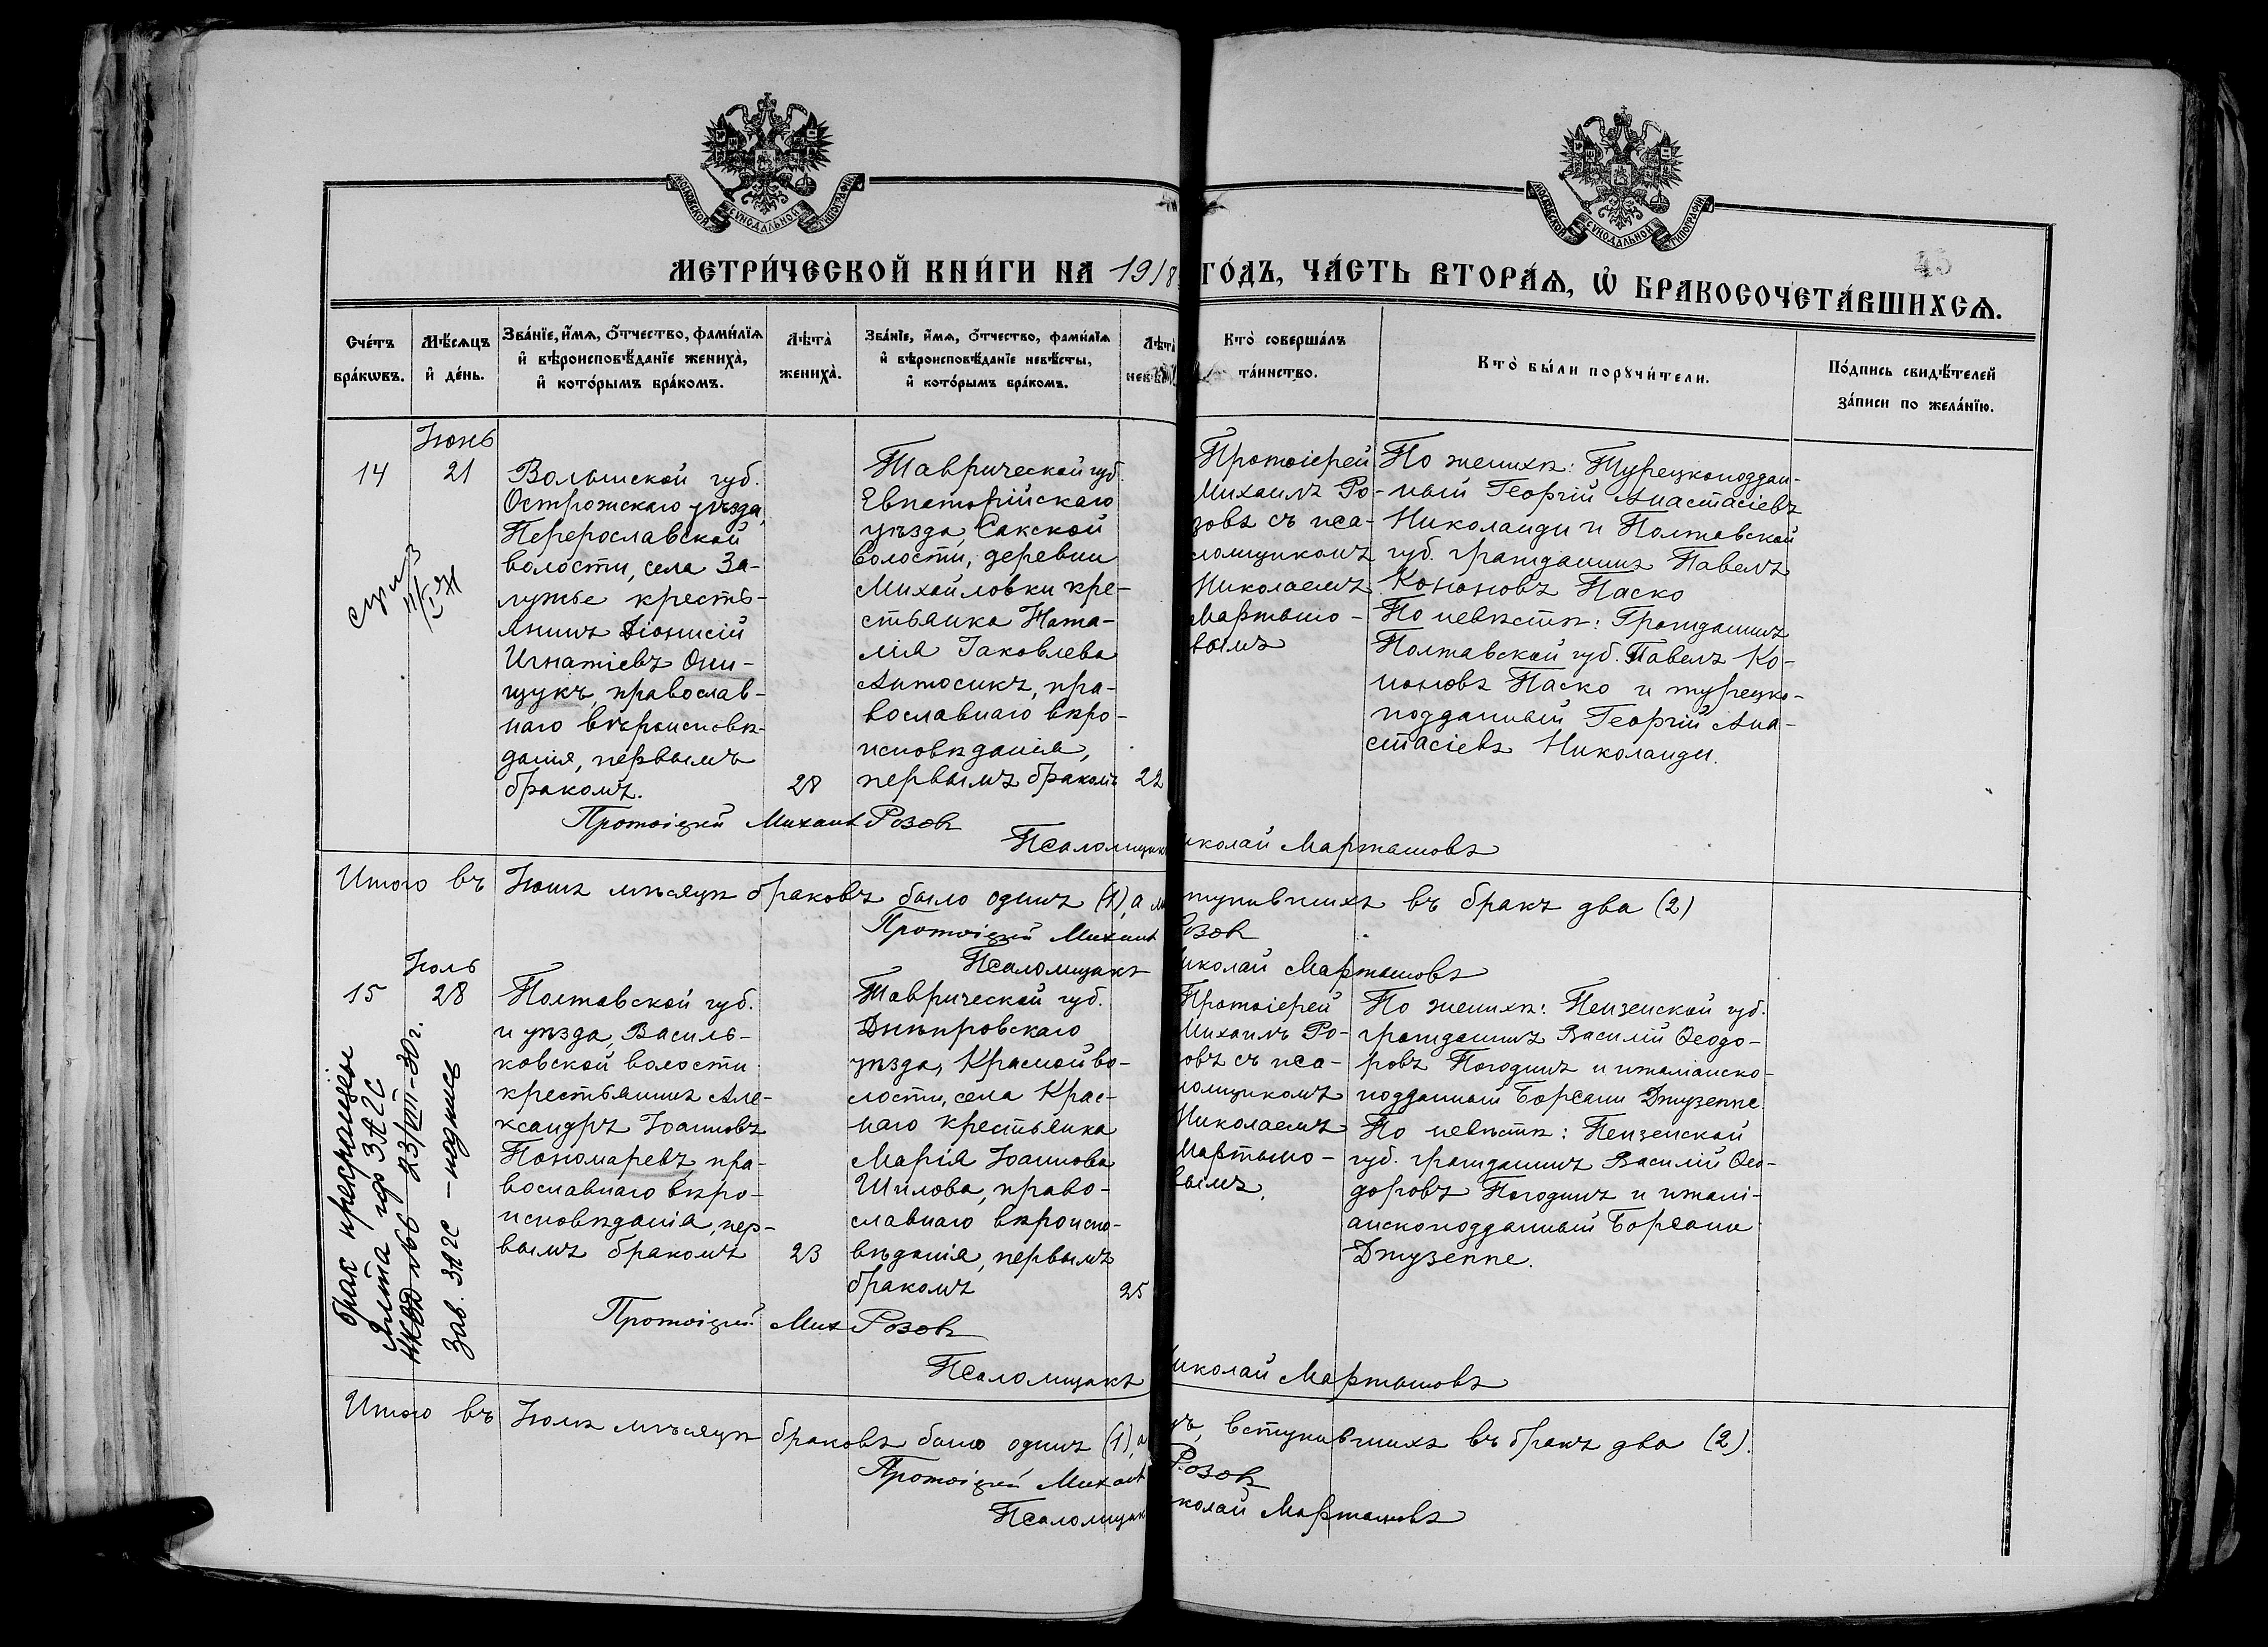 МОСКОВСКОЙ СѴНОДАЛЬНОЙ ТИПОГРАФІИ
МОСКОВСКОЙ СѴНОДАЛЬНОЙ ТИПОГРАФІИ
45
МЕТРИ́ЧЕСКОЙ КНИ́ГИ НА 1918 ГО́ДЪ, ЧА́СТЬ ВТОРА́Ѧ, Ѽ БРАКОСОЧЕТА́ВШИХСѦ.
Сче́тъ бра́кѡвъ.
Мѣ́сѧцъ и҆ де́нь.
Зва́нїе, и҆́мѧ, ѻ҆́тчество, фами́лїѧ
и҆ вѣроисповѣ́данїе жениха̀,
и҆ кото́рымъ бра́комъ.
Лѣ́та̀ жениха̀.
Зва́нїе, и҆́мѧ, ѻ҆́тчество, фами́лїѧ
и҆ вѣроисповѣ́данїе невѣ́сты,
и҆ кото́рымъ бра́комъ.
Лѣта
невѣ
Кто̀ соверша́лъ
та́инство.
Кто̀ бы́ли порꙋчи́тели.
По́дпись свидѣ́телей
за́писи по жела́нїю.
14
Июнь
21
Волынской губ.
Острожскаго уѣзда,
Перерославской
волости, села За-
лужье кресть-
янинъ Діонисій
Игнатіевъ Они-
щукъ, православ-
наго вѣроисповѣ-
данія, первымъ
бракомъ.
28
Таврической губ.
Евпаторійскаго
уѣзда, Сакской
волости, деревни
Михайловки кре-
стьянка Ната-
лія Іаковлева
Антосикъ, пра-
вославнаго вѣро-
исповѣданія,
первымъ бракомъ
22
Протоіерей
Михаилъ Ро-
зовъ съ пса-
ломщикомъ
Николаемъ
Мартыно-
вымъ
По женихѣ: Турецкоподдан-
ный Георгій Анастасіевъ
Николаиди и Полтавской
губ. гражданинъ Павелъ
Кононовъ Паско
По невѣстѣ: Гражданинъ
Полтавской губ. Павелъ Ко-
ноновъ Паско и турецко-
подданный Георгій Ана-
стасіевъ Николаиди.
Протоіерей Михаилъ Розовъ
Псаломщикъ иколай Мартыновъ
Итого въ Іюнѣ мѣсяцѣ браковъ было одинъ (1), а тупившихъ въ бракъ два (2)
Протоіерей Михаилъ озовъ
Псаломщикъ иколай Мартыновъ
15
Июль
28
Полтавской губ.
и уѣзда, Василь-
ковской волости
крестьянинъ Але-
ксандръ Іоанновъ
Пономаревъ, пра-
вославнаго вѣро-
исповѣданія, пер-
вымъ бракомъ
23
Таврической губ.
Днѣпровскаго
уѣзда, Красной во-
лости, села Крас-
наго крестьянка
Марія Іоаннова
Шилова, право-
славнаго вѣроиспо-
вѣданія, первымъ
бракомъ
25
Протоіерей
Михаилъ Ро-
овъ съ пса-
ломщикомъ
Николаемъ
Мартыно-
вымъ.
По женихѣ: Пензенской губ.
гражданинъ Василій Ѳеодо-
ровъ Погодинъ и италіанско-
подданный Борсани Джузеппе.
По невѣстѣ: Пензенской
губ. гражданинъ Василій Ѳео-
доровъ Погодинъ и италі-
анскоподданный Борсани
Джузеппе.
брак прекращён
Ялта гор ЗАГС
№ 66 23/VIII-30 г.
Зав. ЗАГС - подпись
Протоіерей Мих Розовъ
Псаломщикъ Николай Мартыновъ
Итого въ Іюлѣ мѣсяцѣ браковъ было одинъ (1), а ъ, вступившихъ въ бракъ два (2).
Протоіерей Михаилъ Розовъ
Псаломщик колай Мартыновъ